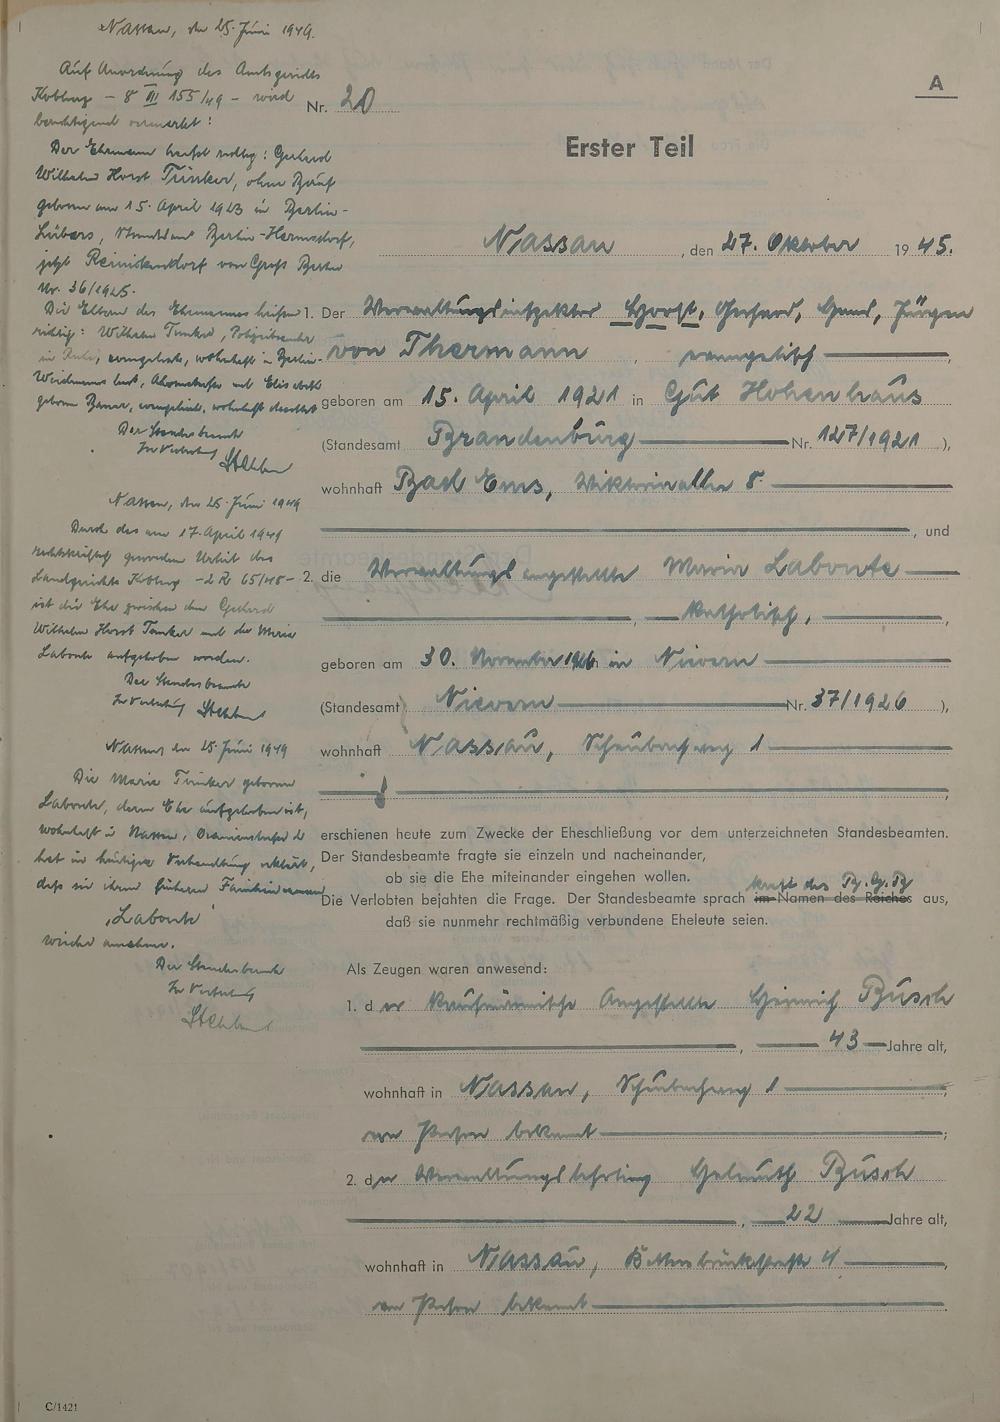 Nassau, den 25. Juni 1949.
Auf Anordnung des Amtsgerichts
Koblenz - 8 III 155/49 - wird
berichtigend vermerkt:
Der Ehemann heißt richtig: Gerhard
Wilhelm Horst Tinker, ohne Beruf
geboren am 15. April 1923 in Berlin-
Lübars, Standesamt Berlin-Hermsdorf,
jetzt Reinickendorf von Groß Berlin
Nr. 36/1925.
Die Eltern des Ehemannes heißen
richtig: Wilhelm Tinker,
in evangelisch, wohnhaft in Berlin-
und Elisabeth
geborene evangelisch, wohnhaft daselbst
Der Standesbeamte
In Vertretung
Nassau, den 25. Juni 1949
Durch das am 17. April 1949
rechtskräftig gewordene Urteil des
Landgerichts Koblenz - 2 R 65/48 -
ist die Ehe zwischen dem Gerhard
Wilhelm Horst Tinker und der Maria
Labonte aufgehoben worden.
Der Standesbeamte
In Vertretung
Nassau den 25. Juni 1949
Die Maria Tinker geborene
Labonte, deren Ehe aufgehoben ist,
wohnhaft in Nassau,
hat in heutiger Verhandlung erklärt,
daß sie ihren früheren Familiennamen
"Labonte"
wieder annehme.
Der Standesbeamte
In Vertretung
A
Nr. 20
Erster Teil
Nassau, den 27. Oktober 1945.
1. Der Verwaltungsinspektor Horst, Gerhard, Hans, Jürgen
von Thermann, evangelisch,
geboren am 15. April 1921 in Gut Hohenhaus
(Standesamt Brandenburg Nr. 127/1921),
wohnhaft Bad Ems, Viktoriaallee 8
, und
2. die Verwaltungsangestellte Maria Labonte
, katholisch,
geboren am 30. November 1926 in Nievern
(Standesamt Nievern Nr. 37/1926),
wohnhaft Nassau, Scheubachweg 1
,
erschienen heute zum Zwecke der Eheschließung vor dem unterzeichneten Standesbeamten.
Der Standesbeamte fragte sie einzeln und nacheinander,
ob sie die Ehe miteinander eingehen wollen.
kraft des
Die Verlobten bejahten die Frage. Der Standesbeamte sprach im Namen des Reiches aus,
daß sie nunmehr rechtmäßig verbundene Eheleute seien.
Als Zeugen waren anwesend:
1. der kaufmännische Angestellte Heinrich Busch
, 43 Jahre alt,
wohnhaft in Nassau, Scheubachweg 1,
von Person bekannt;
2. der Verwaltungslehrling Helmuth Busch
, 22 Jahre alt,
wohnhaft in Nassau, 4,
von Person bekannt.
C/1421